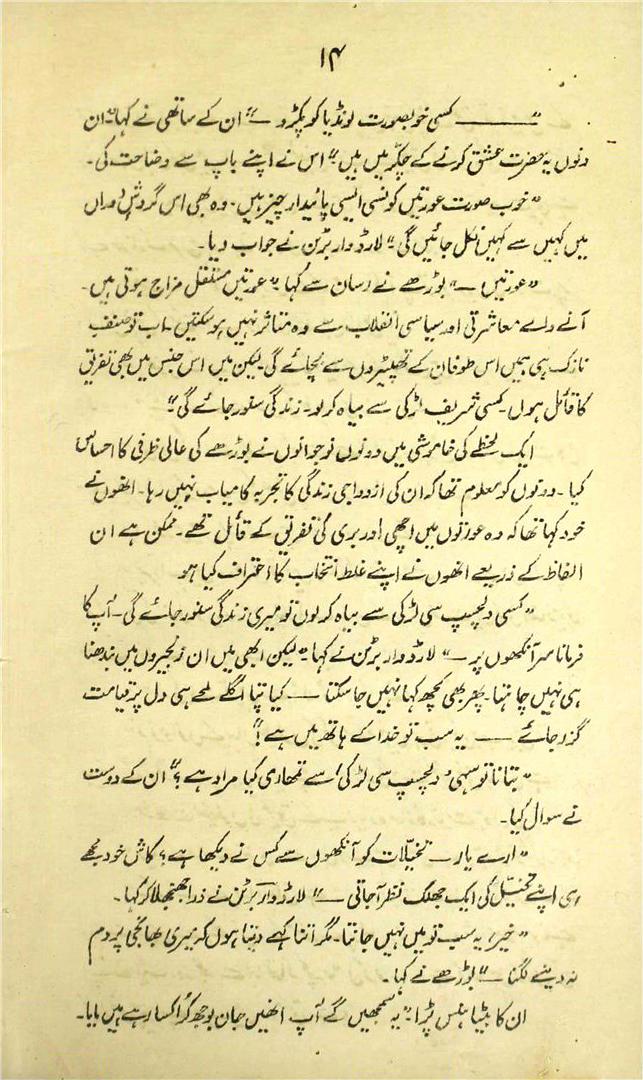 ۱۴
"——— کسی خوبصورت لونڈیا کو پکڑو —" ان کے ساتھی نے کہا۔ "ان
دنوں یہ حضرت عشق کرنے کے چکّر میں ہیں" اس نے اپنے باپ سے وضاحت کی۔
"خوب صورت عورتیں کونسی ایسی پائیدار چیز ہیں۔ وہ بھی اس گردشِ دوراں
میں کہیں سے کہیں نکل جائیں گی" لارڈ وار برٹن نے جواب دیا۔
"عورتیں —" بوڑھے نے رسان سے کہا۔ "عورتیں مستقل مزاج ہوتی ہیں۔
آنے والے معاشرتی اور سیاسی انقلاب سے وہ متاثر نہیں ہو سکتیں۔ اب تو صنفِ
نازک ہی ہمیں اس طوفان کے تھپیڑوں سے بچائے گی۔ لیکن میں اس جنس میں بھی تفریق
کا قائل ہوں۔ کسی شریف لڑکی سے بیاہ کر لو۔ زندگی سنور جائے گی"
ایک لحظے کی خاموشی میں دونوں نوجوانوں نے بوڑھے کی عالی ظرفی کا احساس
کیا۔ دونوں کو معلوم تھا کہ ان کی ازدواجی زندگی کا تجربہ کامیاب نہیں رہا۔ انھوں نے
خود کہا تھا کہ وہ عورتوں میں اچھی اور بری کی تفریق کے قائل تھے۔ ممکن ہے ان
الفاظ کے ذریعے انھوں نے اپنے غلط انتخاب کا اعتراف کیا ہو
"کسی دلچسپ سی لڑکی سے بیاہ کر لوں تو میری زندگی سنور جائے گی۔ آپ کا
فرمانا سر آنکھوں پر —" لارڈ وار برٹن نے کہا۔ "لیکن ابھی میں ان زنجیروں میں بندھنا
ہی نہیں چاہتا۔ پھر بھی کچھ کہا نہیں جا سکتا — کیا پتا اگلے لمحے ہی دل پر قیامت
گزر جائے — یہ سب تو خدا کے ہاتھ میں ہے!"
"بتانا تو سہی 'دلچسپ سی لڑکی' سے تمھاری کیا مراد ہے؟" ان کے دوست
نے سوال کیا۔
"ارے یار — تخیّلات کو آنکھوں سے کس نے دیکھا ہے؟ کاش خود مجھے
ہی اپنے تخیّل کی ایک جھلک نظر آ جاتی —" لارڈ وار برٹن نے ذرا جھنجھلا کر کہا۔
"خیر، یہ سب تو میں نہیں جانتا۔ مگر اتنا کہے دیتا ہوں کہ میری بھانجی پر دم
نہ دینے لگنا —" بوڑھے نے کہا۔
ان کا بیٹا ہنس پڑا۔ "یہ سمجھیں گے آپ انھیں جان بوجھ کر اکسا رہے ہیں بابا۔